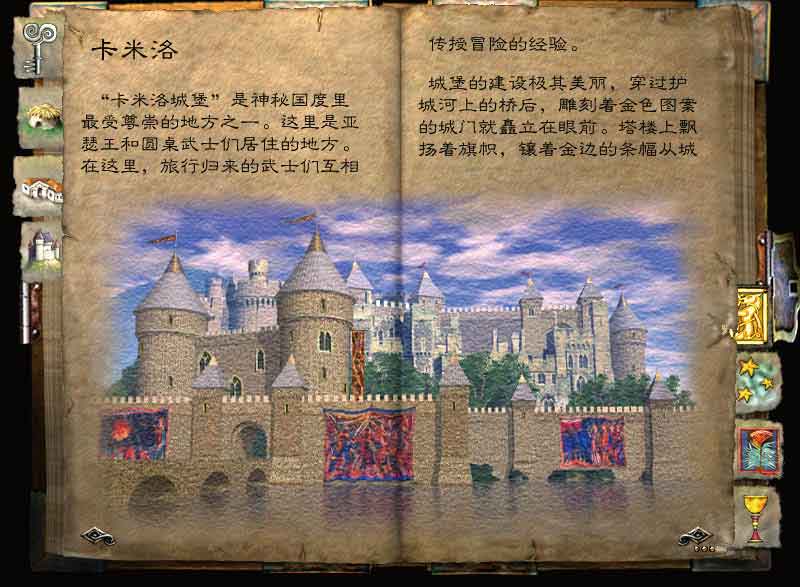 卡米洛
“卡米洛城堡”是神秘国度里
最受尊崇的地方之一。这里是亚
瑟王和圆桌武士们居住的地方。
在这里，旅行归来的武士们互相
传授冒险的经验。
城堡的建设极其美丽，穿过护
城河上的桥后，雕刻着金色图案
的城门就矗立在眼前。塔楼上飘
扬着旗帜，镶着金边的条幅从城